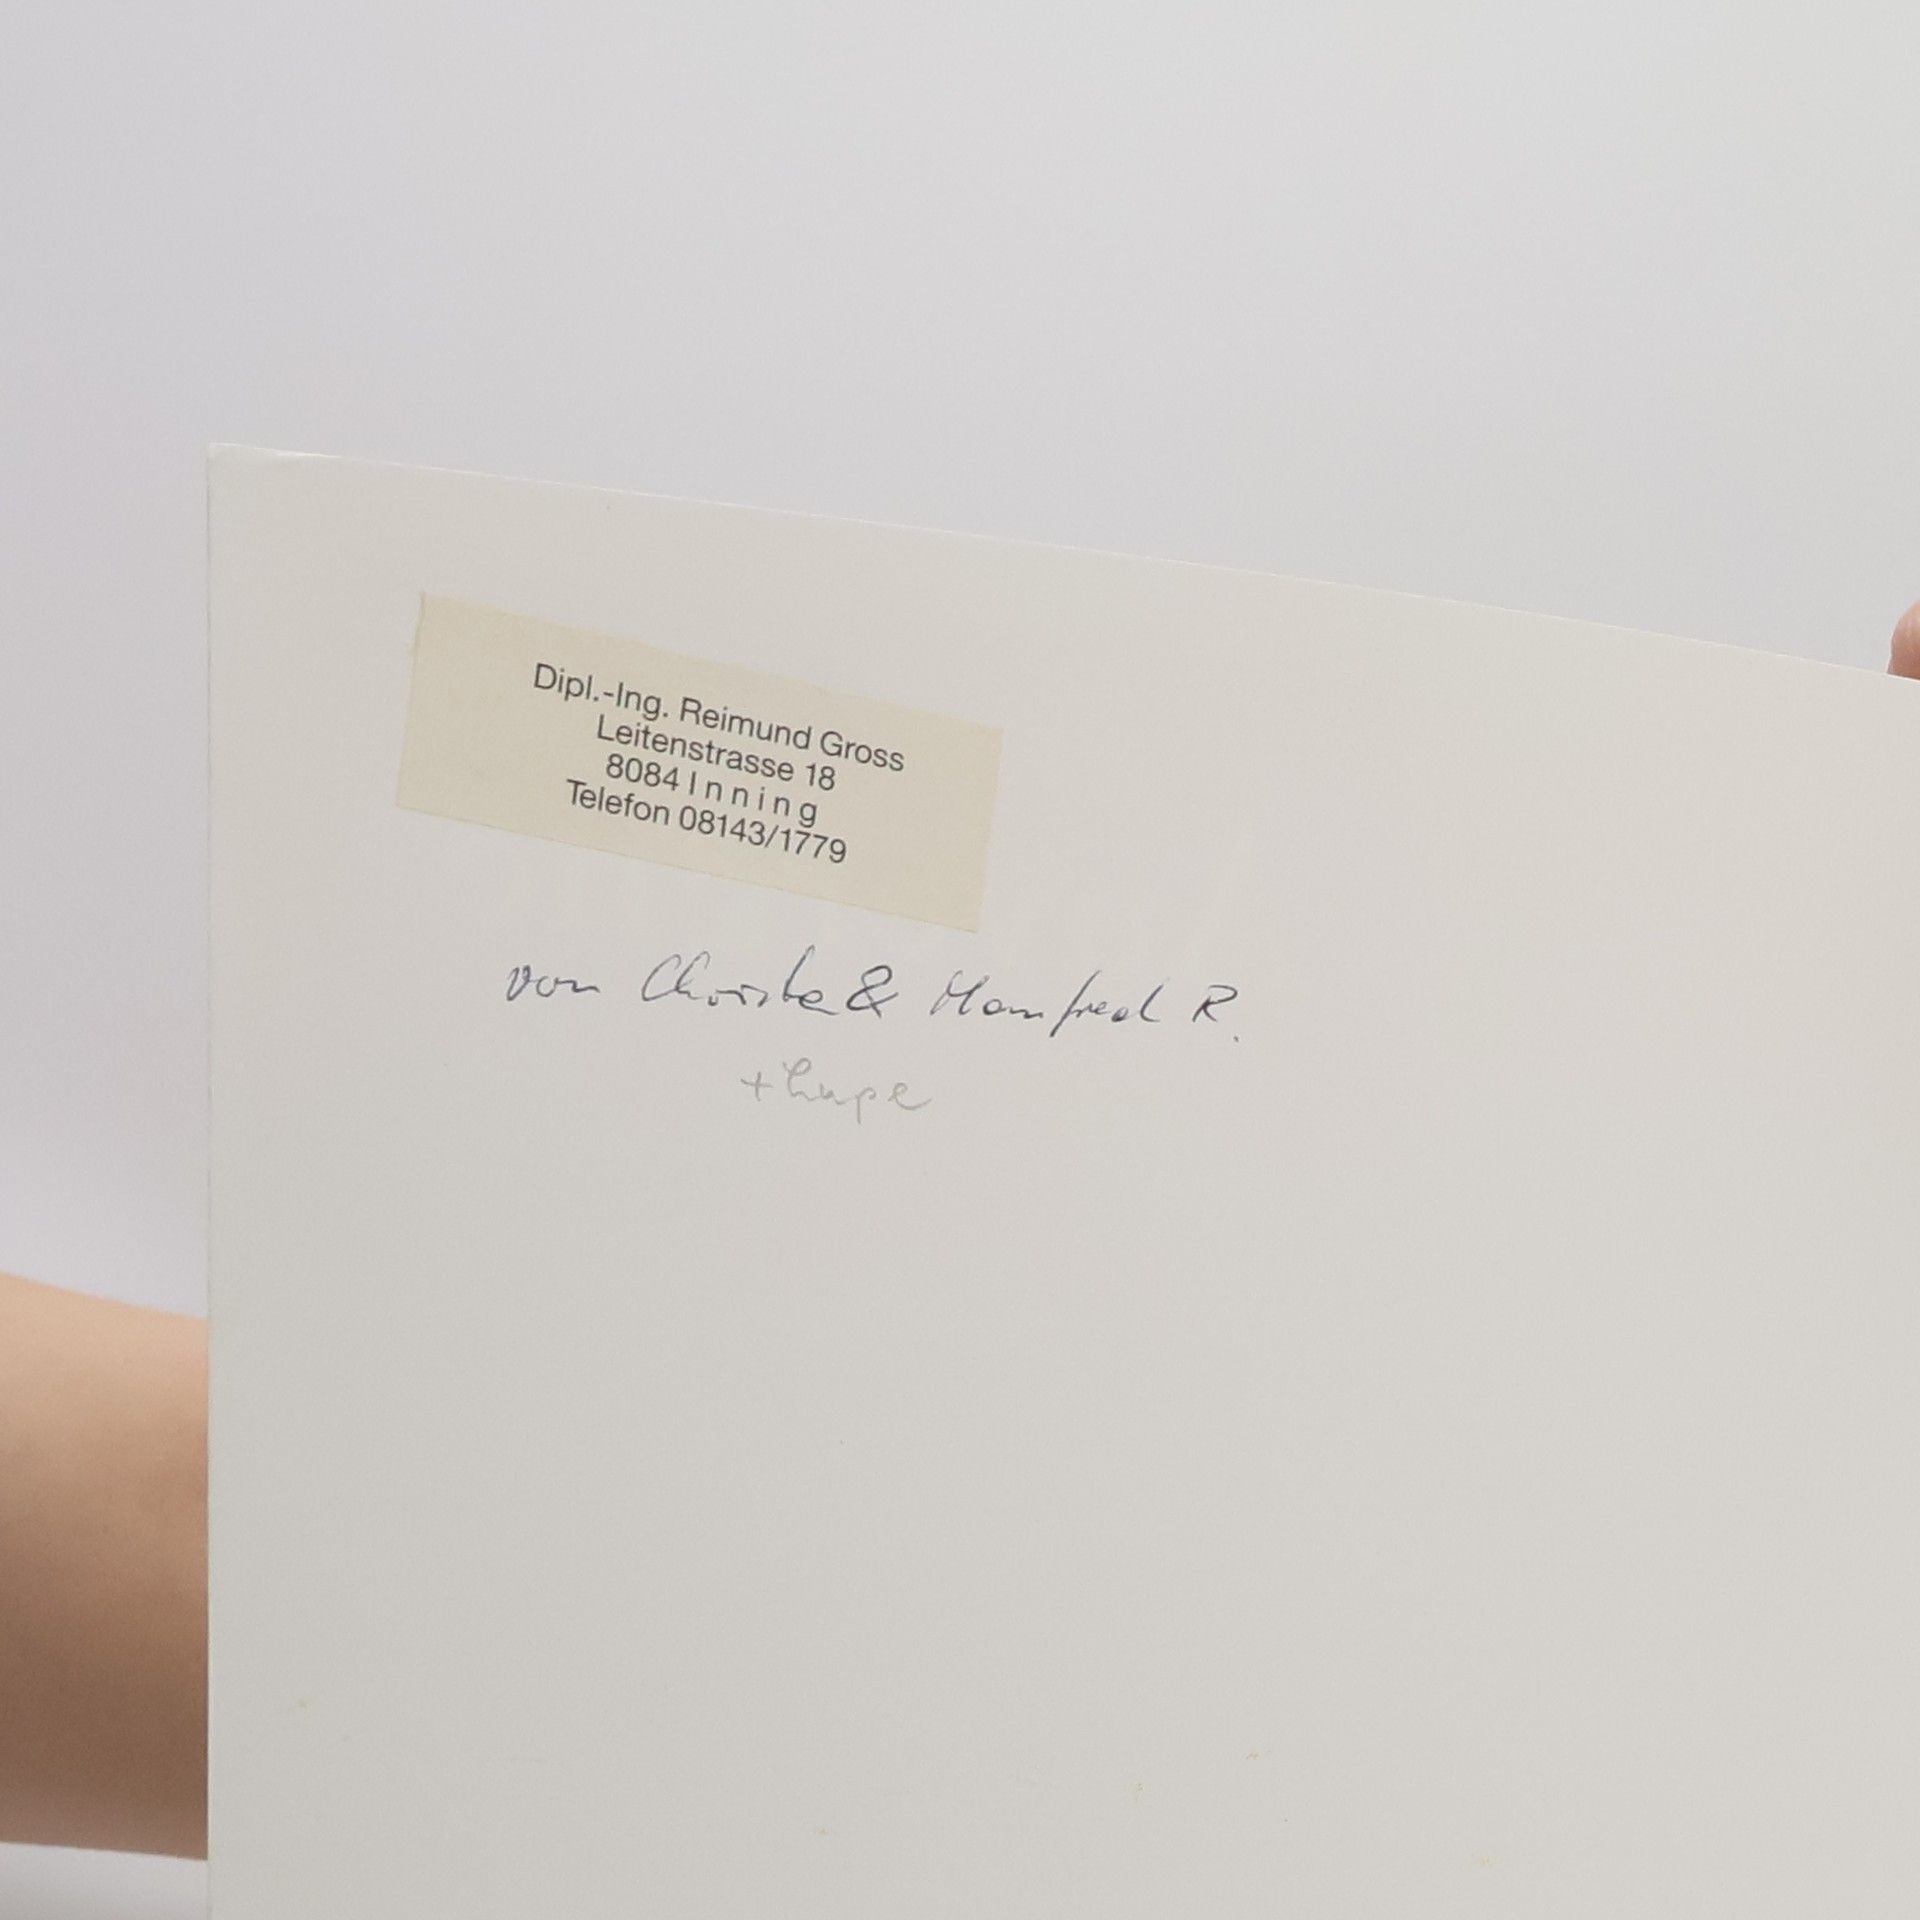 Dipl.-Ing. Reimund Gross
Leitenstrasse 18
8084 Inning
Telefon 08143/1779
von Christa & Manfred R.
+ Lupe